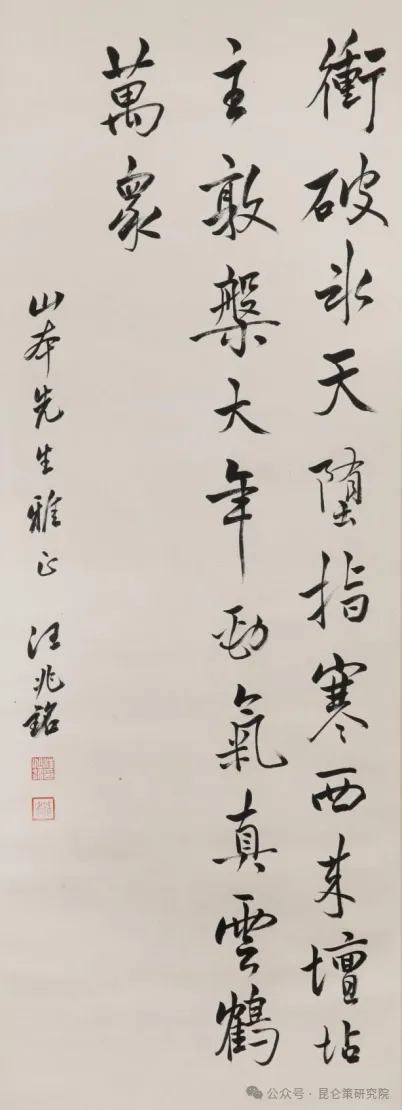 衝破冰天墮指寒西来壇坫
主敦槃大年勁氣真雲鶴
萬衆
山本先生雅正 汪兆銘
公众号 · 昆仑策研究院